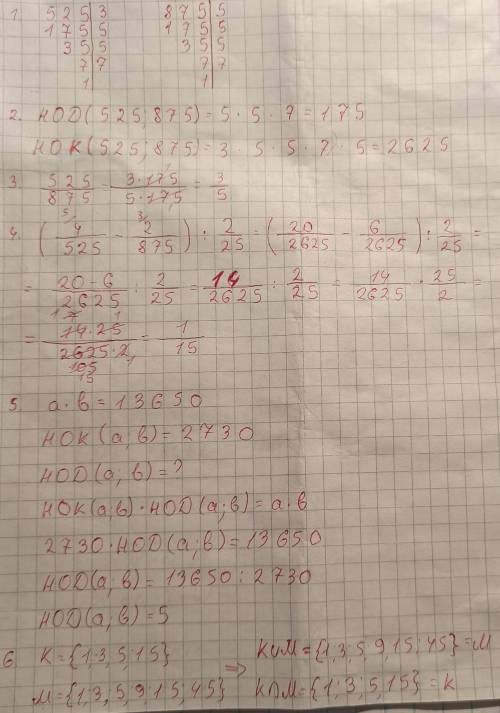 1. 525|3 875|5
175|5 175|5
35|5 35|5
7|7 7|7
1| 1|
2. НОD(525;875)=5·5·7=175
НОК(525;875)=3·5·5·7·5=2625
3. 525/875=3·175/5·175=3/5
4. (4/525-2/875):2/25=(20/2625-6/2625):2/25=
=20-6/2625:2/25=14/2625:2/25=14/2625·25/2=
=14·25/2625·2=1/15
5. а·в=13650
НОК(а;в)=2730
НОD(а;в)=?
НОК(а;в)·НОD(а;в)=а·в
2730·НОD(а;в)=13650
НОD(а;в)=13650:2730
НОD(а;в)=5
6. К={1;3,5;15} ⇒ К∪М={1,3,5,9,15;45}=М
М={1,3,5,9,15;45} К∩М={1;3;5,15}=К